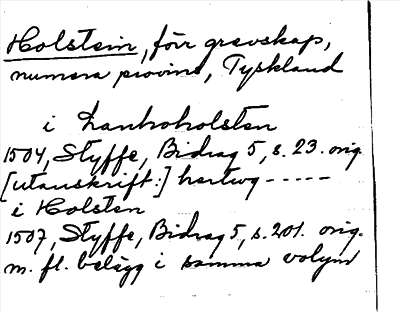 Holstein, förr grevskap,
numera provins, Tyskland
i Lanhoholsten
1504, Styffe, Bidrag 5, s. 23. orig.
[utanskrift:] hertug -----
i Holsten
1507, Styffe, Bidrag 5, s. 201. orig.
m. fl. belägg i samma volym